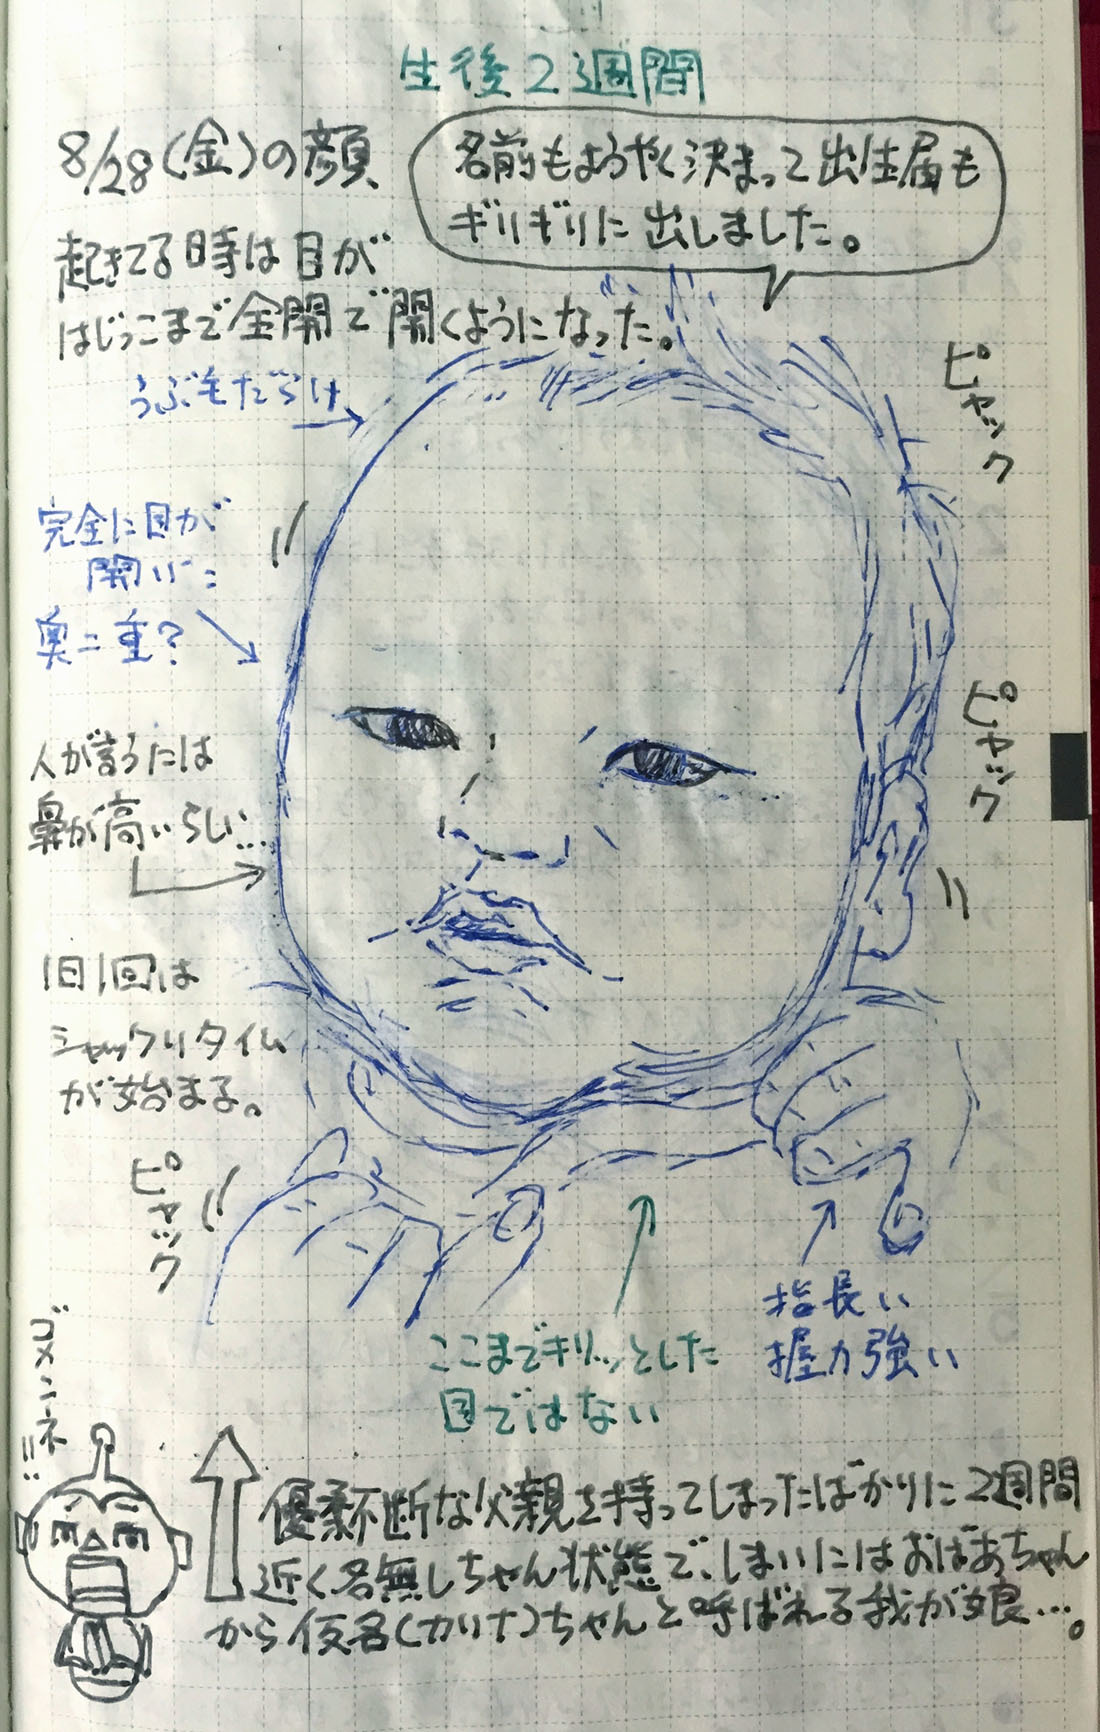 生後2週間
8/28(金)の顔
名前もようやく決まって出生届も
ギリギリに出しました。
起きてる時は目が
はじっこまで全開で開くようになった。
うぶもだらけ
ピャック
完全に目が
開いた
奥二重?
ピャック
人が言うには
鼻が高いらしい…
1日1回は
シャックリタイム
が始まる。
ピャック
指長い
握力強い
ここまでキリッとした
目ではない
ゴメンネ
優柔不断な父親を持ってしまったばかりに2週間
近く名無しちゃん状態で、しまいにはおばあちゃん
から仮名(カリナ)ちゃんと呼ばれる我が娘…。